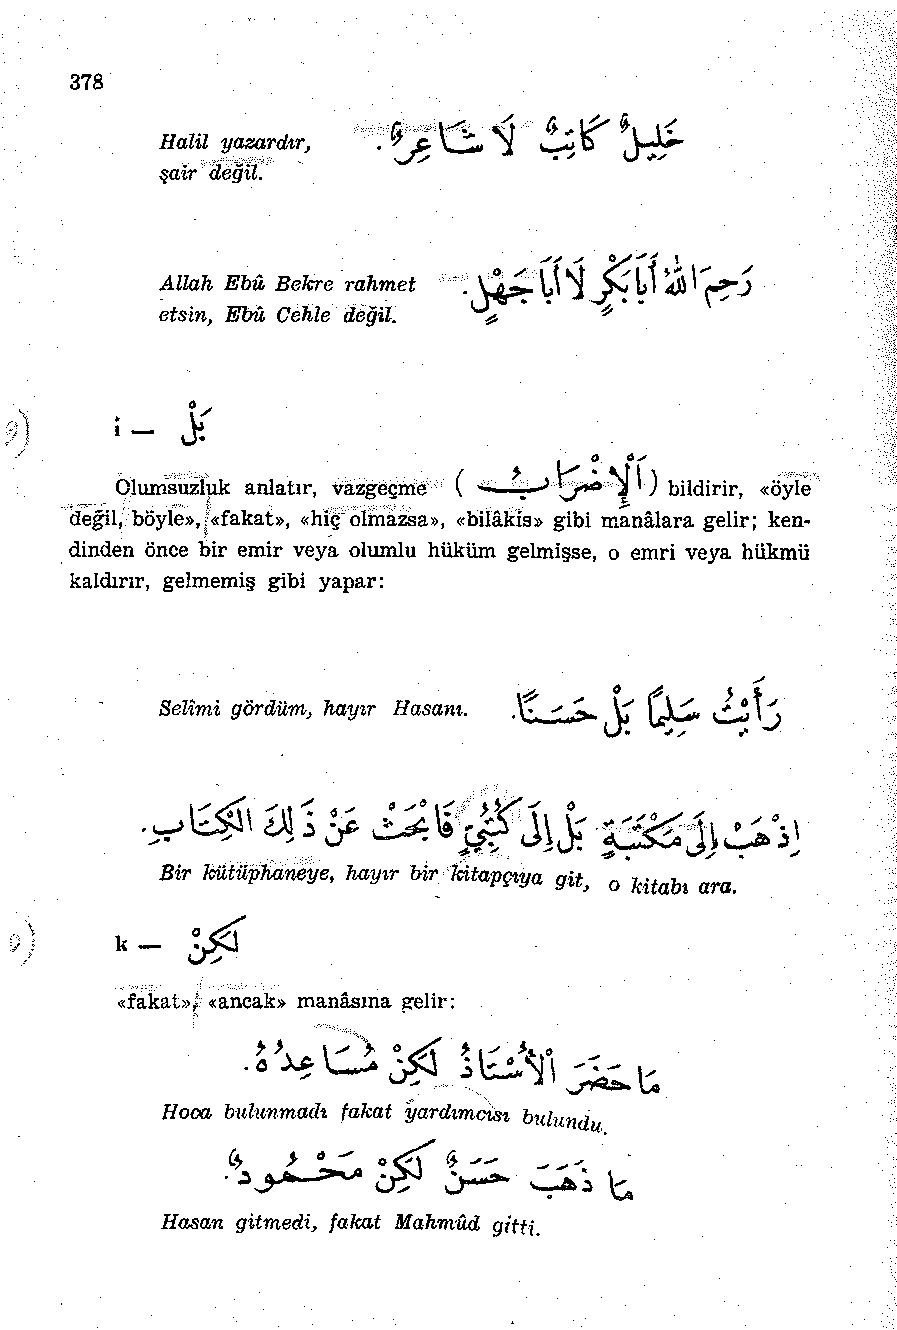 378
Halil yazardır, خَلِيلٌ كَاتِبٌ لَا شَاعِرٌ.
şair değil.
Allah Ebû Bekre rahmet رَحِمَ اللهُ أَبَابَكْرٍ لَا أَبَا جَهْلٍ.
etsin, Ebû Cehle değil.
i — بَلْ
Olumsuzluk anlatır, vazgeçme (اَلْإِضْرَابُ) bildirir, «öyle
değil, böyle», «fakat», «hiç olmazsa», «bilâkis» gibi manâlara gelir; ken-
dinden önce bir emir veya olumlu hüküm gelmişse, o emri veya hükmü
kaldırır, gelmemiş gibi yapar:
Selîmi gördüm, hayır Hasanı. رَأَيْتُ سَلِيمًا بَلْ حَسَنًا.
اِذْهَبْ إِلَى مَكْتَبَةٍ بَلْ إِلَى كُتُبِيٍّ فَابْحَثْ عَنْ ذَلِكَ الْكِتَابِ.
Bir kütüphaneye, hayır bir kitapçıya git, o kitabı ara.
k — لَكِنْ
«fakat», «ancak» manâsına gelir:
مَا حَضَرَ الْأُسْتَاذُ لَكِنْ مُسَاعِدُهُ.
Hoca bulunmadı fakat yardımcısı bulundu.
مَا ذَهَبَ حَسَنٌ لَكِنْ مَحْمُودٌ.
Hasan gitmedi, fakat Mahmûd gitti.